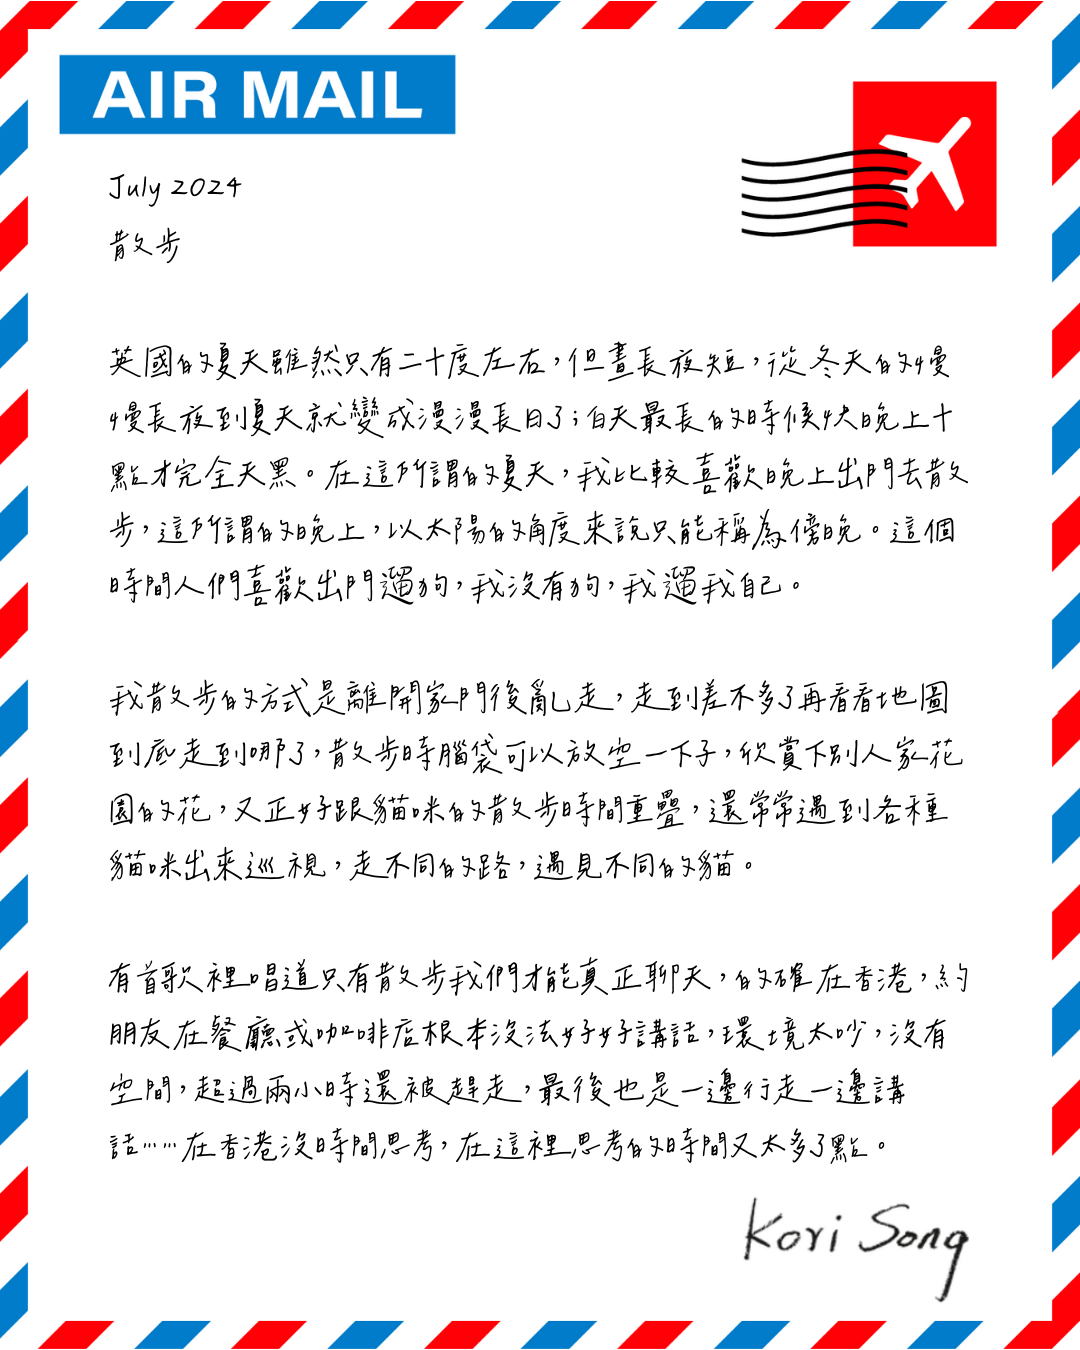 AIR MAIL
July 2024
散步
英國的夏天雖然只有二十度左右，但晝長夜短，從冬天的慢
慢長夜到夏天就變成漫漫長日了；白天最長的時候快晚上十
點才完全天黑。在這所謂的夏天，我比較喜歡晚上出門去散
步，這所謂的晚上，以太陽的角度來說只能稱為傍晚。這個
時間人們喜歡出門遛狗，我沒有狗，我遛我自己。
我散步的方式是離開家門後亂走，走到差不多了再看看地圖
到底走到哪了，散步時腦袋可以放空一下子，欣賞下別人家花
園的花，又正好跟貓咪的散步時間重疊，還常常遇到各種
貓咪出來巡視，走不同的路，遇見不同的貓。
有首歌裡唱道只有散步我們才能真正聊天，的確在香港，約
朋友在餐廳或咖啡店根本沒法好好講話，環境太吵，沒有
空間，超過兩小時還被趕走，最後也是一邊行走一邊講
話⋯⋯在香港沒時間思考，在這裡思考的時間又太多了點。
Kori Song